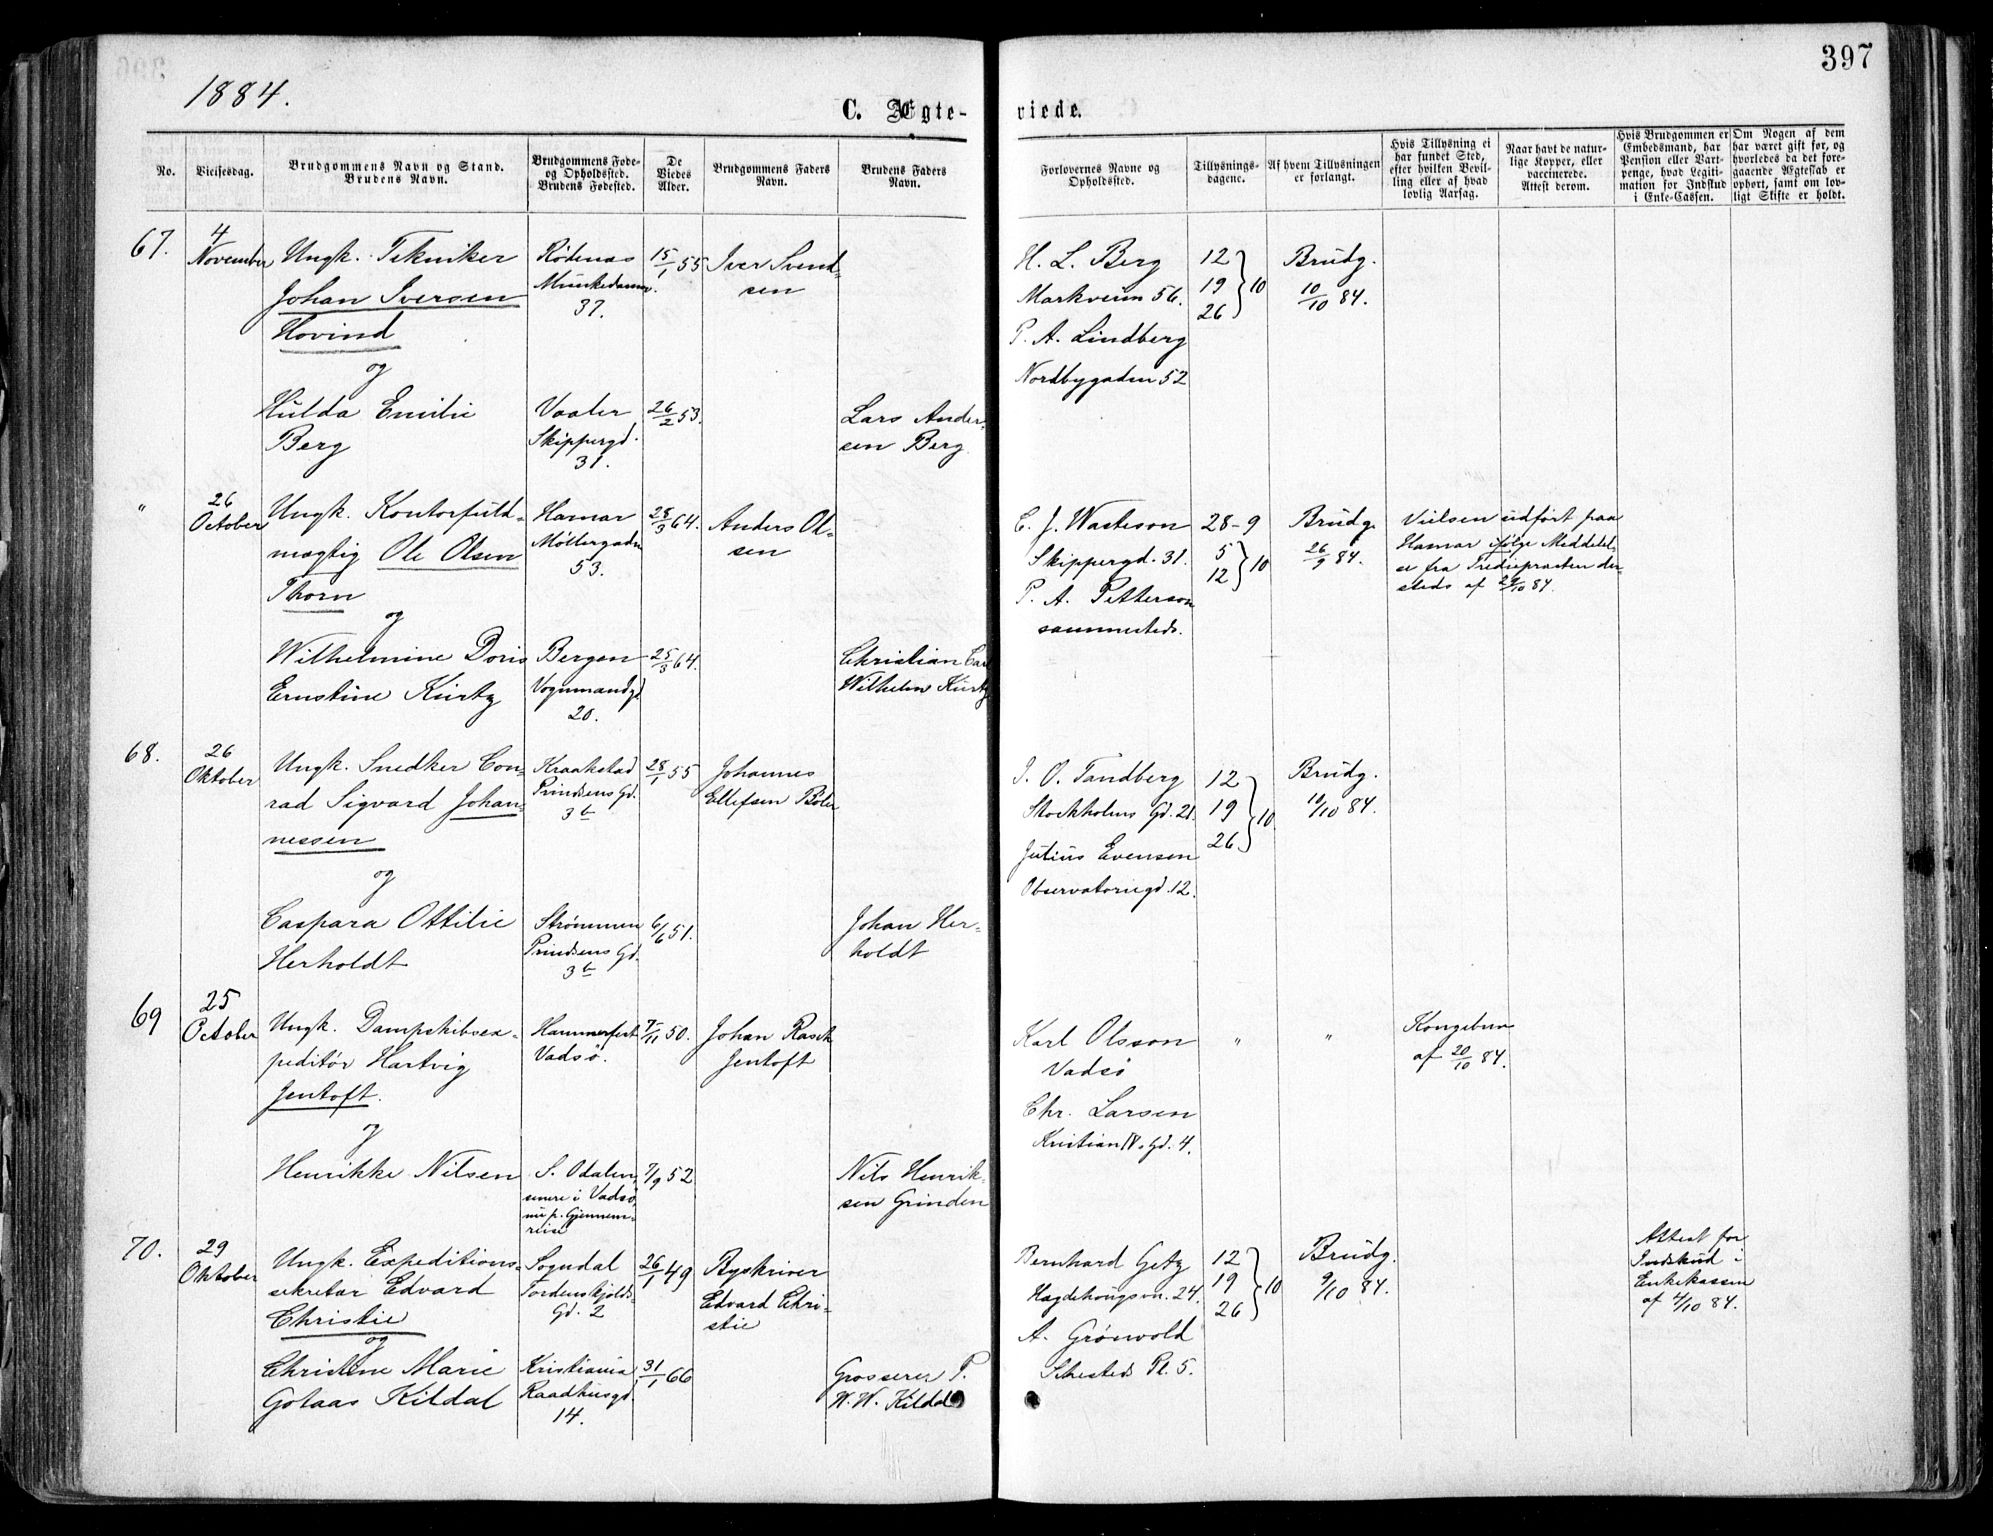 397
1884.
C. Ægte-
viede.
No.
Vielsesdag.
Brudgommens Navn og Stand.
Brudens Navn.
Brudgommens Føde-
og Opholdssted.
Brudens Fødested.
De
Viedes
Alder.
Brudgommens Faders
Navn.
Brudens Faders
Navn.
Forlovernes Navne og
Opholdssted.
Tillysnings-
dagene.
Af hvem Tillysningen
er forlangt.
Hvis Tillysning ei
har fundet Sted,
efter hvilken Bevil-
ling eller af hvad
lovlig Aarsag.
Naar havt de natur-
lige Kopper, eller
vaccinerede.
Attest derom.
Hvis Brudgommen er
Embedsmand, har
Pension eller Vart-
penge, hvad Legiti-
mation for Indskud
i Enke-Cassen.
Om Nogen af dem
har været gift før, og
hvorledes da det fore-
gaaende Ægteskab er
ophørt, samt om lov-
ligt Skifte er holdt.
67.
4
November
Ungk. Tekniker
Johan Iversen
Hovind
og
Hulda Emilie
Berg
Rødenas
Munkedamsv.
37.
Vaaler
Skippergd.
31.
15/1 55
26/2 53.
Iver Svend-
sen
Lars Ander-
sen Berg
H. L. Berg
Markveien 56.
P. A. Lindberg
Nordbygaden 52
12
19
26 } 10
Brudg.
10/10 84.
"
26
October
Ungk. Kontorfuld-
mægtig Ole Olsen
Thorn
og
Wilhelmine Doris
Ernstine Kurtz
Hamar
Møllergaden
53.
Bergen
Vognmandgd
20.
28/3 64.
25/3 64.
Anders Ol-
sen
Christian Carl
Wilhelm Kurtz
C. J. Wasteson
Skippergd. 31.
P. A. Petterson
sammesteds.
28-9
5
12 } 10
Brudg.
26/9 84.
Vielsen udført paa
Hamar ifølge Meddelel-
se fra Trediepræsten der-
steds af 29/10 84.
68.
26
Oktober
Ungk. Snedker Con-
rad Sigvard Johan-
nessen
og
Caspara Ottilie
Herholdt
Kraakstad
Prindsens Gd.
3 b
Strømmen
Prindsens Gd.
3 b
28/1 55
6/6 51.
Johannes
Ellefsen Boler
Johan Her-
holdt
J. O. Tandberg
Stockholms Gd. 21.
Julius Evensen
Observatoriegd. 12.
12
19
26 } 10
Brudg.
10/10 84.
69
25
October
Ungk. Dampskibsex-
peditør Hartvig
Jentoft.
og
Henrikke Nilsen
Hammerfest
Vadsø.
S. Odalen,
senere i Vadsø,
nu p. Gjennem-
reise
7/11 50.
7/9 52
Johan Rasch
Jentoft
Nils Henrik-
sen Grinden
Karl Olsson
Vadsø
Chr. Larsen
Kristian IVs Gd. 4.
"
"
Kongebrev
af 20/10 84.
70.
29
Oktober
Ungk. Expeditions-
sekretær Edvard
Christie
og
Christine Marie
Gotaas Kildal
Sogndal
Tordenskjolds
Gd. 2
Kristiania
Raadhusgd.
14.
26/1 49
31/1 66
Byskriver
Edvard Chri-
stie
Grosserer P.
W. W. Kildal
Bernhard Getz
Hægdehougsvn. 24.
A. Grönvold
Sehesteds Pl. 5.
12
19
26 } 10
Brudg.
9/10 84.
Attest for
Indskud i
Enkekassen
af 4/10 84.